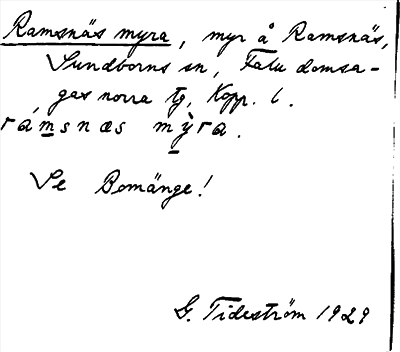 Ramsnäs myra, myr å Ramsnäs,
Sundborns sn, Falu domsa-
gas norra tg, Kopp. l.
rámsnæs mỳra.
Se Bomänge!
G. Tideström 1929